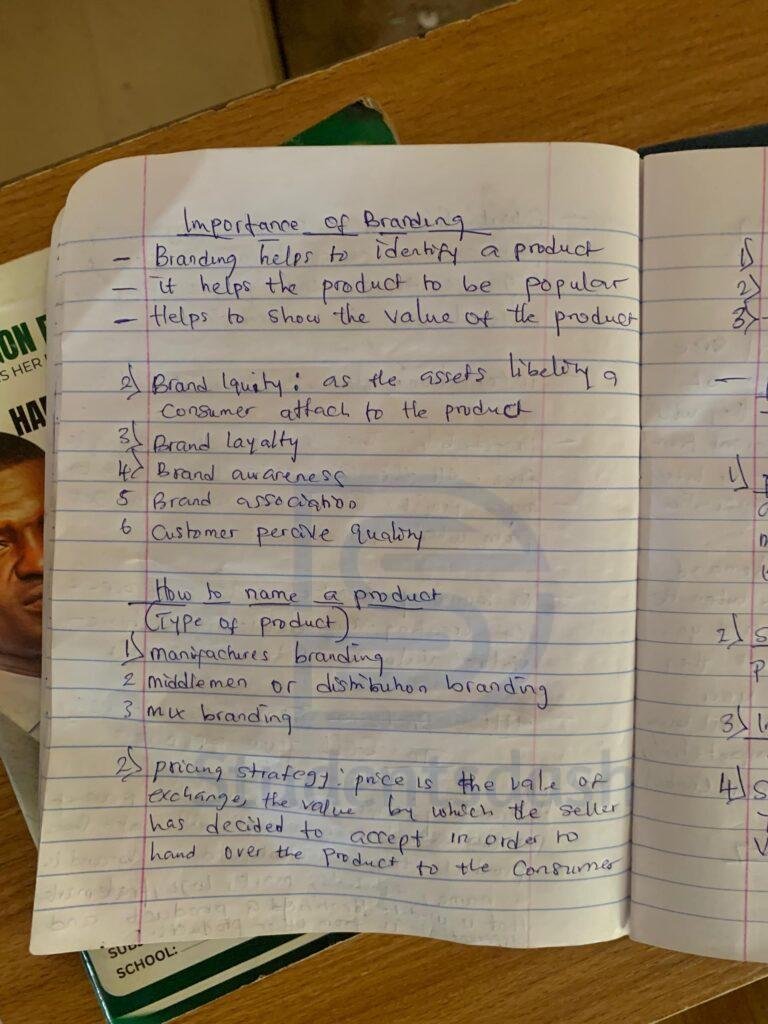 Importance of Branding
- Branding helps to identify a product
- it helps the product to be popular
- Helps to show the value of the product
2) Brand lquity: as the assets libelity a
consumer attach to the product
3) Brand layalty
4) Brand awareness
5 Brand association
6 Customer percive quality
How to name a product
(Type of product)
1) manifactures branding
2 middlemen or distribution branding
3 mix branding
2) pricing strategy: price is the vale of
exchange, the value by which the seller
has decided to accept in order to
hand over the product to the consumer
1)
2)
3)
1)
2) S
P
3)
4) S
V
ON
S HER
HA
SUB
SCHOOL:
studentsdash